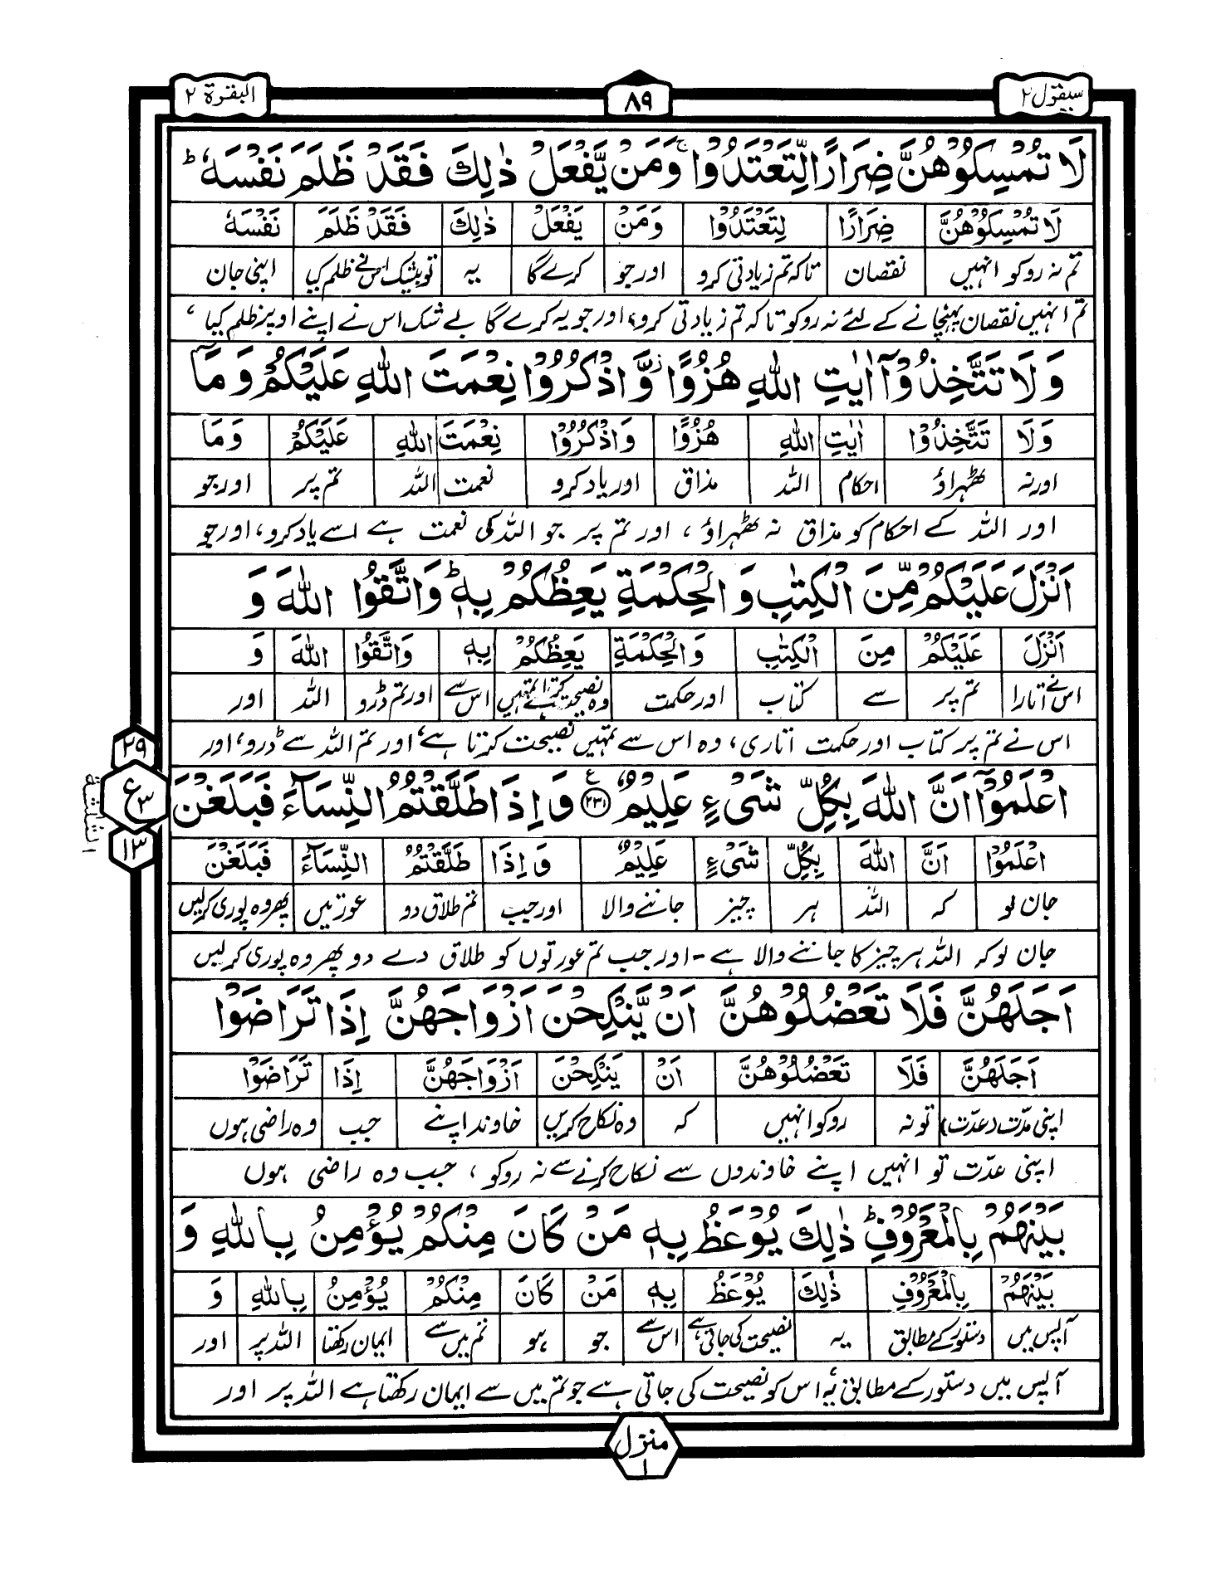 سيقول ٢ ٨٩ البقرة ٢
لَا تُمْسِكُوْهُنَّ ضِرَارًا لِّتَعْتَدُوْا ۚ وَمَنْ يَّفْعَلْ ذٰلِكَ فَقَدْ ظَلَمَ نَفْسَهٗ ؕ
لَا تُمْسِكُوْهُنَّ ضِرَارًا لِتَعْتَدُوْا وَمَنْ يَفْعَلْ ذٰلِكَ فَقَدْ ظَلَمَ نَفْسَهٗ
تم نہ روکو انہیں نقصان تاکہ تم زیادتی کرو اور جو کرے گا یہ تو بیشک اس نے ظلم کیا اپنی جان
تم انہیں نقصان پہنچانے کے لئے نہ روکو تاکہ تم زیادتی کرو، اور جو یہ کرے گا بے شک اس نے اپنے اوپر ظلم کیا ،
وَلَا تَتَّخِذُوْۤا اٰيٰتِ اللّٰهِ هُزُوًا ؗ وَّاذْكُرُوْا نِعْمَتَ اللّٰهِ عَلَيْكُمْ وَمَاۤ
وَلَا تَتَّخِذُوْا اٰيٰتِ اللّٰهِ هُزُوًا وَاذْكُرُوْا نِعْمَتَ اللّٰهِ عَلَيْكُمْ وَمَا
اور نہ ٹھہراؤ احکام اللہ مذاق اور یاد کرو نعمت اللہ تم پر اور جو
اور اللہ کے احکام کو مذاق نہ ٹھہراؤ ، اور تم پر جو اللہ کی نعمت ہے اسے یاد کرو، اور جو
اَنْزَلَ عَلَيْكُمْ مِّنَ الْكِتٰبِ وَالْحِكْمَةِ يَعِظُكُمْ بِهٖ ؕ وَاتَّقُوا اللّٰهَ وَ
اَنْزَلَ عَلَيْكُمْ مِنَ الْكِتٰبِ وَالْحِكْمَةِ يَعِظُكُمْ بِهٖ وَاتَّقُوْا اللّٰهَ وَ
اس نے اتارا تم پر سے کتاب اور حکمت وہ نصیحت کرتا ہے تمہیں اس سے اور تم ڈرو اللہ اور
اس نے تم پر کتاب اور حکمت اتاری، وہ اس سے تمہیں نصیحت کرتا ہے، اور تم اللہ سے ڈرو، اور
اعْلَمُوْۤا اَنَّ اللّٰهَ بِكُلِّ شَیْءٍ عَلِيْمٌ ﴿٢٣١﴾ ع وَاِذَا طَلَّقْتُمُ النِّسَآءَ فَبَلَغْنَ
٢٩ ع ٣ ١٣
الثلثة
اعْلَمُوْا اَنَّ اللّٰهَ بِكُلِّ شَیْءٍ عَلِيْمٌ وَاِذَا طَلَّقْتُمُ النِّسَآءَ فَبَلَغْنَ
جان لو کہ اللہ ہر چیز جاننے والا اور جب تم طلاق دو عورتیں پھر وہ پوری کرلیں
جان لو کہ اللہ ہر چیز کا جاننے والا ہے - اور جب تم عورتوں کو طلاق دے دو پھر وہ پوری کرلیں
اَجَلَهُنَّ فَلَا تَعْضُلُوْهُنَّ اَنْ يَّنْكِحْنَ اَزْوَاجَهُنَّ اِذَا تَرَاضَوْا
اَجَلَهُنَّ فَلَا تَعْضُلُوْهُنَّ اَنْ يَنْكِحْنَ اَزْوَاجَهُنَّ اِذَا تَرَاضَوْا
اپنی مدّت (عدّت) تو نہ روکو انہیں کہ وہ نکاح کریں خاوند اپنے جب وہ راضی ہوں
اپنی عدّت تو انہیں اپنے خاوندوں سے نکاح کرنے سے نہ روکو ، جب وہ راضی ہوں
بَيْنَهُمْ بِالْمَعْرُوْفِ ؕ ذٰلِكَ يُوْعَظُ بِهٖ مَنْ كَانَ مِنْكُمْ يُؤْمِنُ بِاللّٰهِ وَ
بَيْنَهُمْ بِالْمَعْرُوْفِ ذٰلِكَ يُوْعَظُ بِهٖ مَنْ كَانَ مِنْكُمْ يُؤْمِنُ بِاللّٰهِ وَ
آپس میں دستور کے مطابق یہ نصیحت کی جاتی ہے اس سے جو ہو تم میں سے ایمان رکھتا اللہ پر اور
آپس میں دستور کے مطابق یہ اس کو نصیحت کی جاتی ہے جو تم میں سے ایمان رکھتا ہے اللہ پر اور
منزل ١